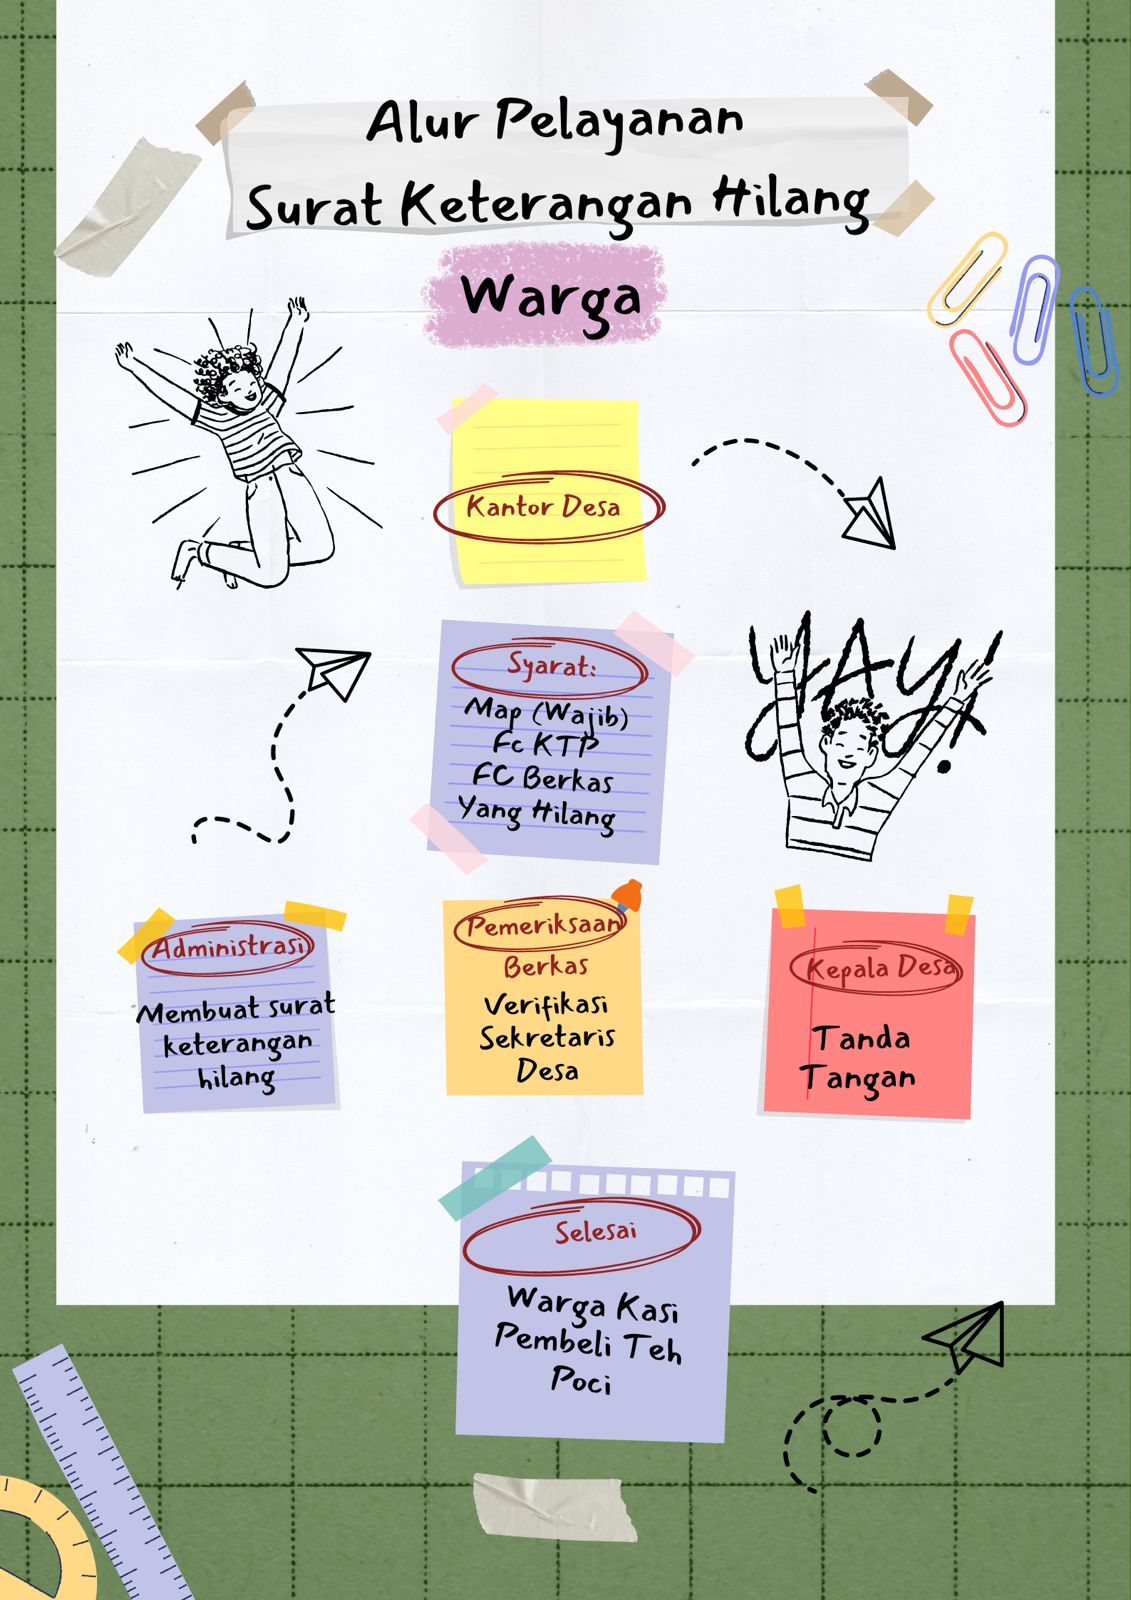 Alur Pelayanan
Surat Keterangan Hilang
Warga
Kantor Desa
Syarat:
Map (Wajib)
Fc KTP
FC Berkas
Yang Hilang
YAY!
Administrasi
Membuat surat
keterangan
hilang
Pemeriksaan
Berkas
Verifikasi
Sekretaris
Desa
Kepala Desa
Tanda
Tangan
Selesai
Warga Kasi
Pembeli Teh
Poci